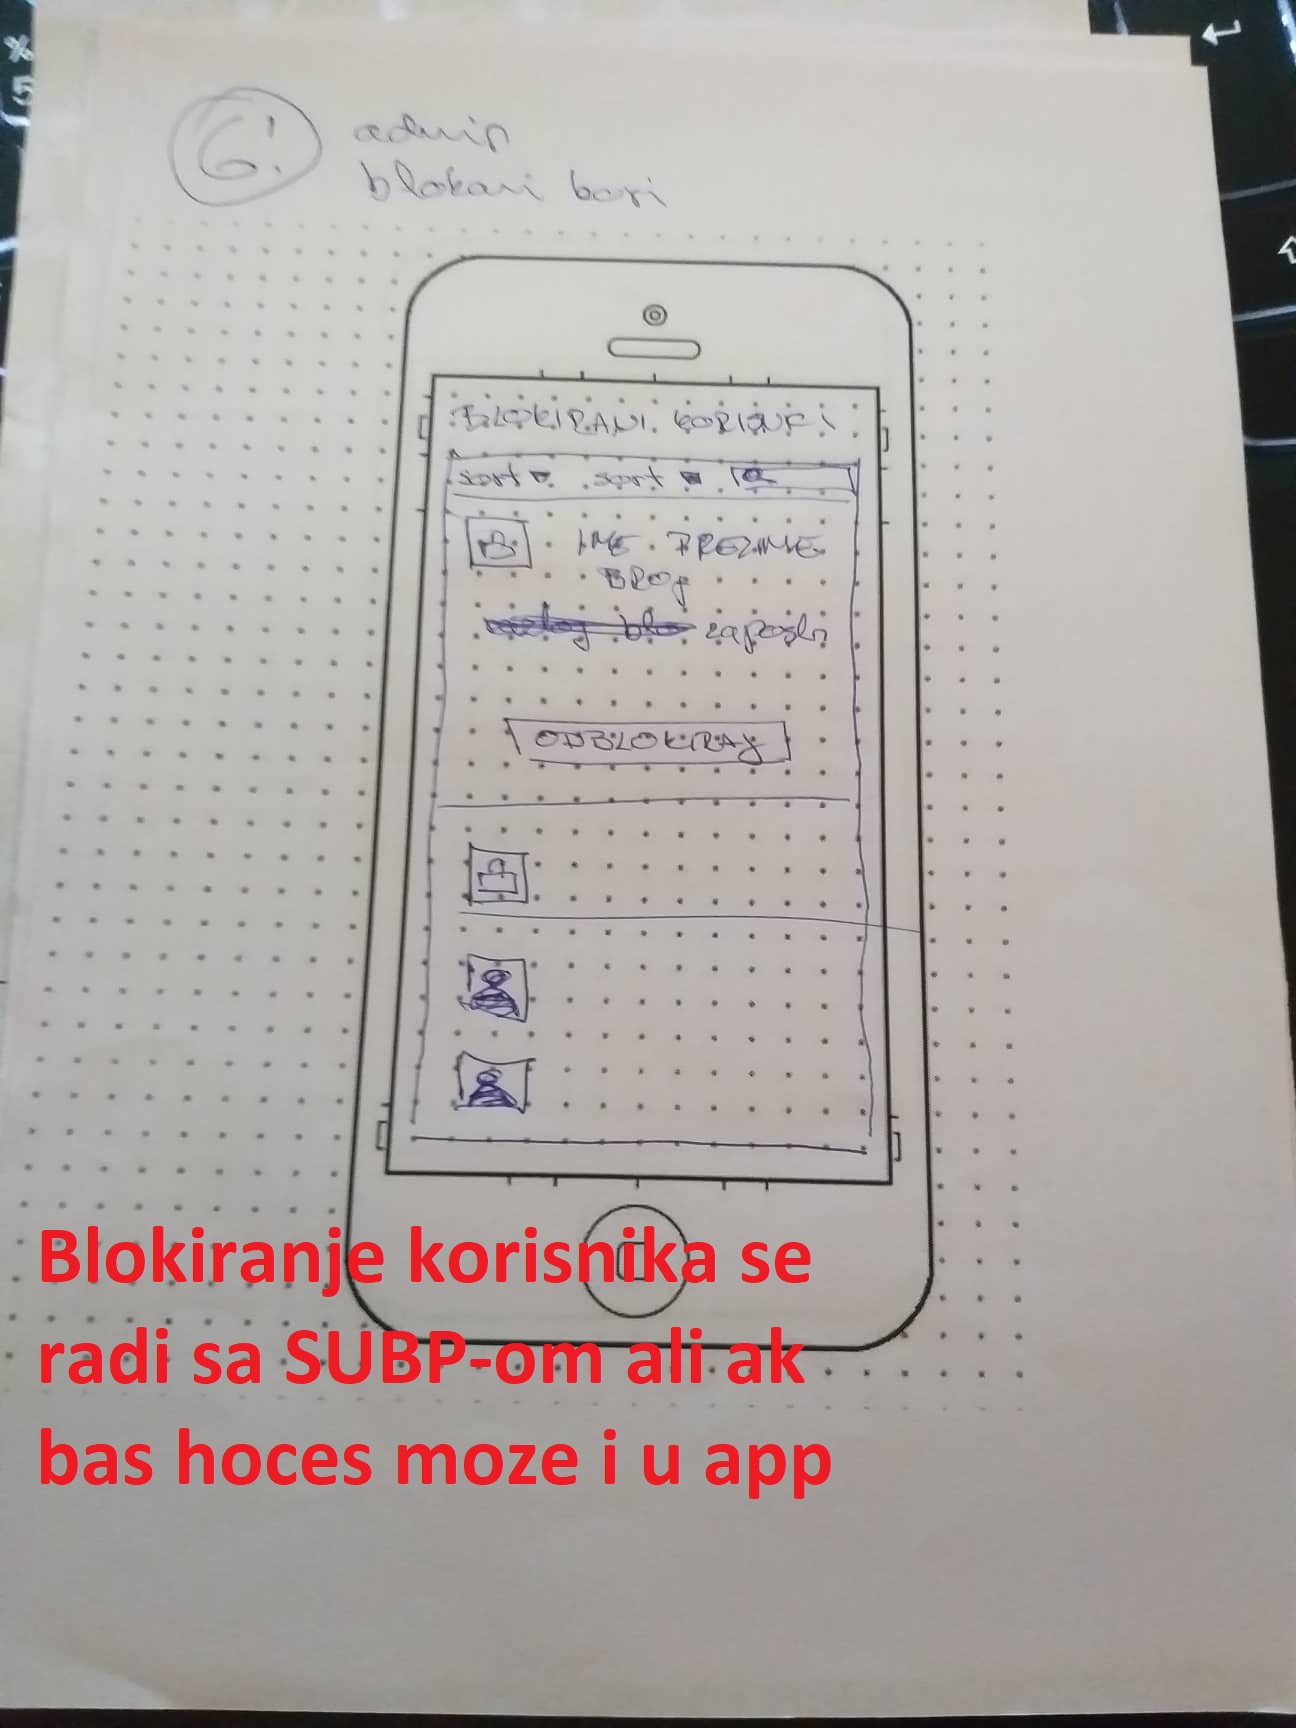 6!
admin
blokani kori
BLOKIRANI KORISNCI
sort sort
IME PREZIME
BROJ
zaposln
ODBLOKIRAJ
Blokiranje korisnika se
radi sa SUBP-om ali ak
bas hoces moze i u app